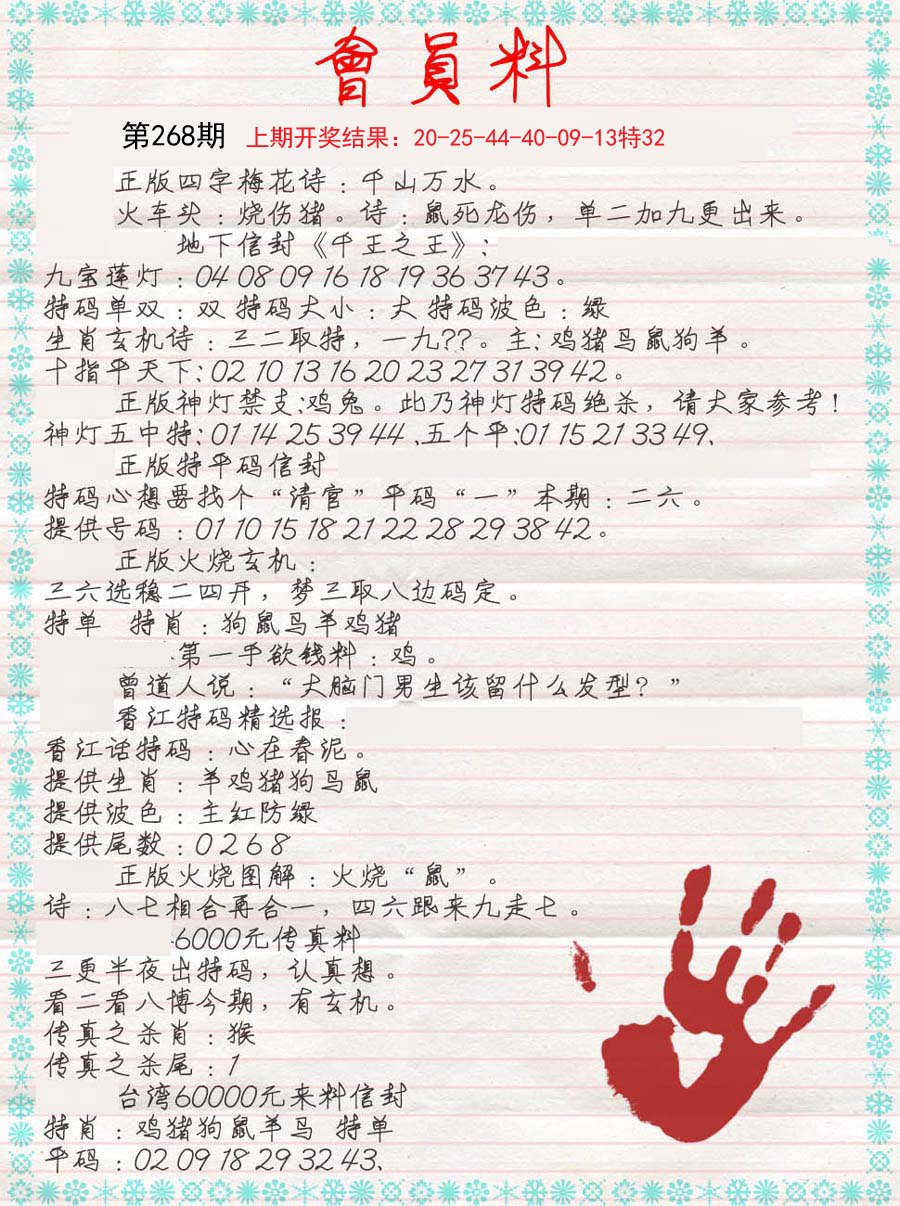 會員料
第268期 上期开奖结果：20-25-44-40-09-13特32
正版四字梅花诗：千山万水。
火车头：烧伤猪。诗：鼠死龙伤，单二加九更出来。
地下信封《千王之王》：
九宝莲灯：04 08 09 16 18 19 36 37 43。
特码单双：双 特码大小：大 特码波色：绿
生肖玄机诗：三二取特，一九??。主：鸡猪马鼠狗羊。
十指平天下：02 10 13 16 20 23 27 31 39 42。
正版神灯禁支:鸡兔。此乃神灯特码绝杀，请大家参考！
神灯五中特：01 14 25 39 44、五个平:01 15 21 33 49、
正版特平码信封
特码心想要找个“清官”平码“一”本期：二六。
提供号码：01 10 15 18 21 22 28 29 38 42。
正版火烧玄机：
三六选稳二四开，梦三取八边码定。
特单 特肖：狗鼠马羊鸡猪
第一手欲钱料：鸡。
曾道人说：“大脑门男生该留什么发型？”
香江特码精选报：
香江话特码：心在春泥。
提供生肖：羊鸡猪狗马鼠
提供波色：主红防绿
提供尾数：0 2 6 8
正版火烧图解：火烧“鼠”。
诗：八七相合再合一，四六跟来九走七。
6000元传真料
三更半夜出特码，认真想。
看二看八博今期，有玄机。
传真之杀肖：猴
传真之杀尾：1
台湾60000元来料信封
特肖：鸡猪狗鼠羊马 特单
平码：02 09 18 29 32 43、